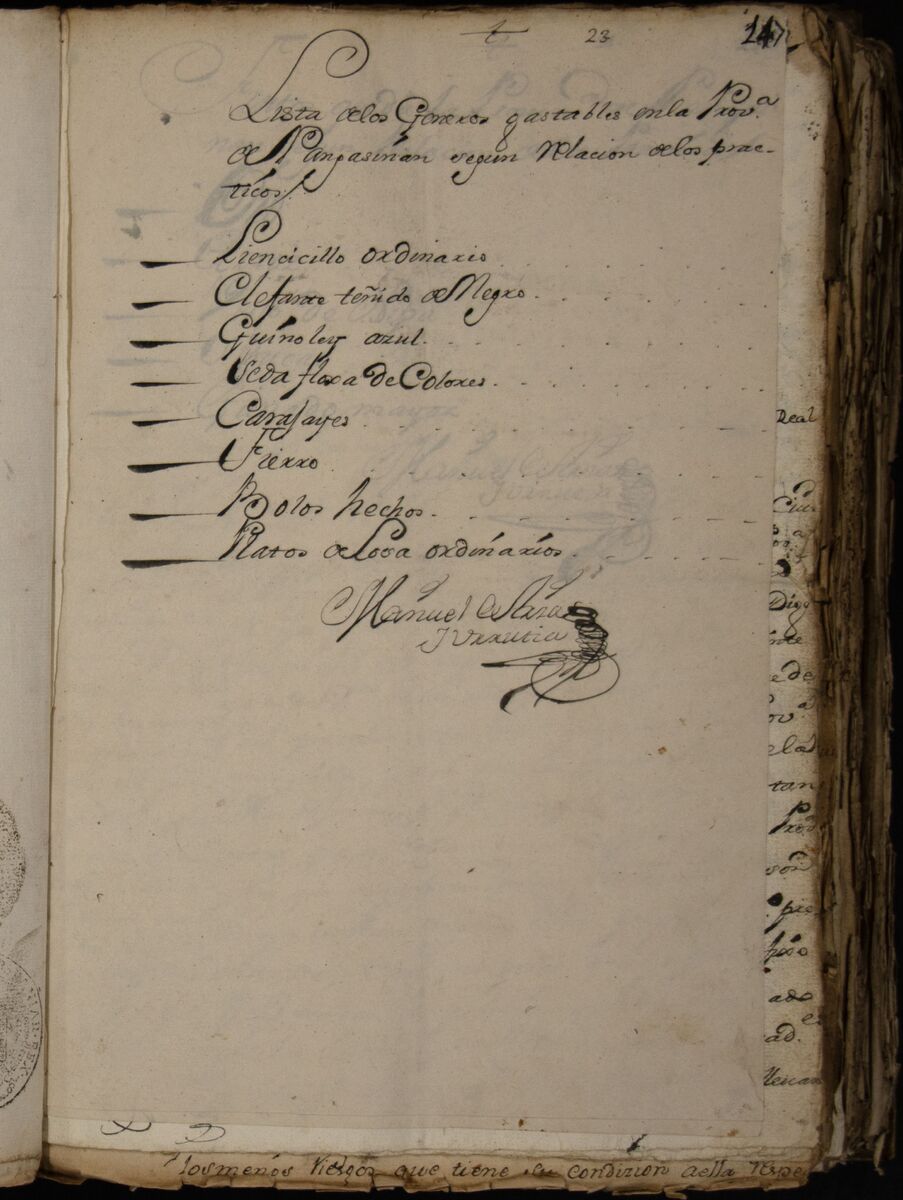 23
247
Lista de los Generos gastables en la Prov.ª
de Pangasinan segun Relacion de los prac-
ticos
Liencicillo ordinario
Elefante teñido de Negro
Guinoley azul.
Seda floxa de Colores.
Carajayes
Fierro
Bolos hechos.
Platos de Losa ordinarios
Manuel de
Y Urrutia
Real
Digo
ante
e de
ov.ª
elad
tan
son
pre
ado
ad.
los menos riesgos que tiene su condizion a ella